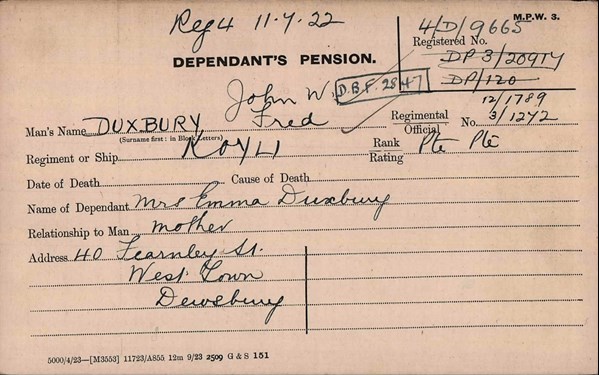 Reg 4 11.7.22
M.P.W. 3.
4/D/9665
Registered No.
DP 3/209TY
DP/120
DEPENDANT'S PENSION.
D.B.F. 2847
John W.
Man's Name DUXBURY Fred
(Surname first: in Block Letters)
Regimental
Official No. 12/1789
3/1272
Regiment or Ship KOYLI
Rank
Rating Pte Pte
Date of Death Cause of Death
Name of Dependant Mrs Emma Duxbury
Relationship to Man mother
Address 40 Fearnley St.
West Town
Dewsbury
5000/4/23—[M3553] 11723/A855 12m 9/23 2509 G & S 151